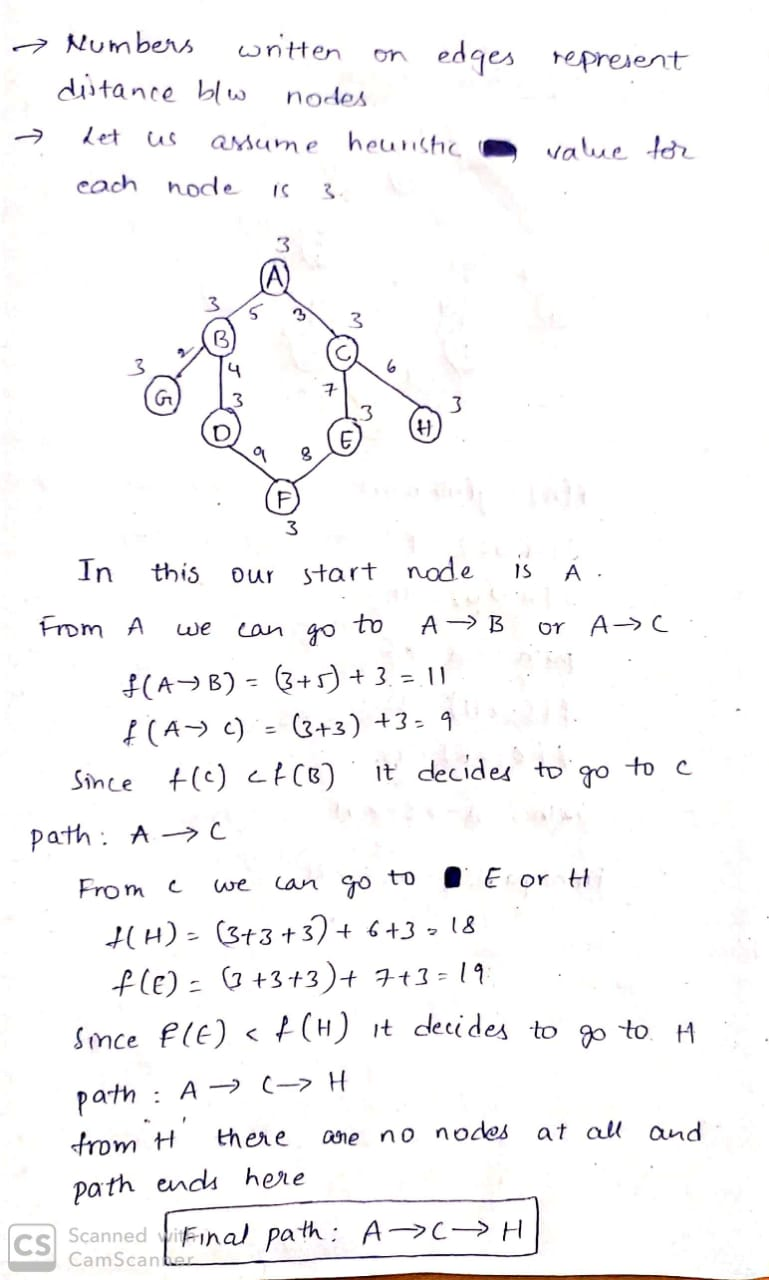 → Numbers written on edges represent
distance b/w nodes
→ Let us assume heuristic value for
each node is 3.
3
A
3 5 3 3
B
C
3 2 4 7 6
G
3
3
3
D
E
H
9 8
F
3
In this our start node is A.
From A we can go to A → B or A → C
f(A→B) = (3+5) + 3 = 11
f(A→ C) = (3+3) +3 = 9
Since f(C) < f(B) it decides to go to C
path : A → C
From C we can go to E or H
f(H) = (3+3+3) + 6+3 = 18
f(E) = (3+3+3)+ 7+3 = 19
Since f(E) < f(H) it decides to go to H
path : A → C → H
from 'H' there are no nodes at all and
path ends here
Final path : A → C → H
CS Scanned with
CamScanner